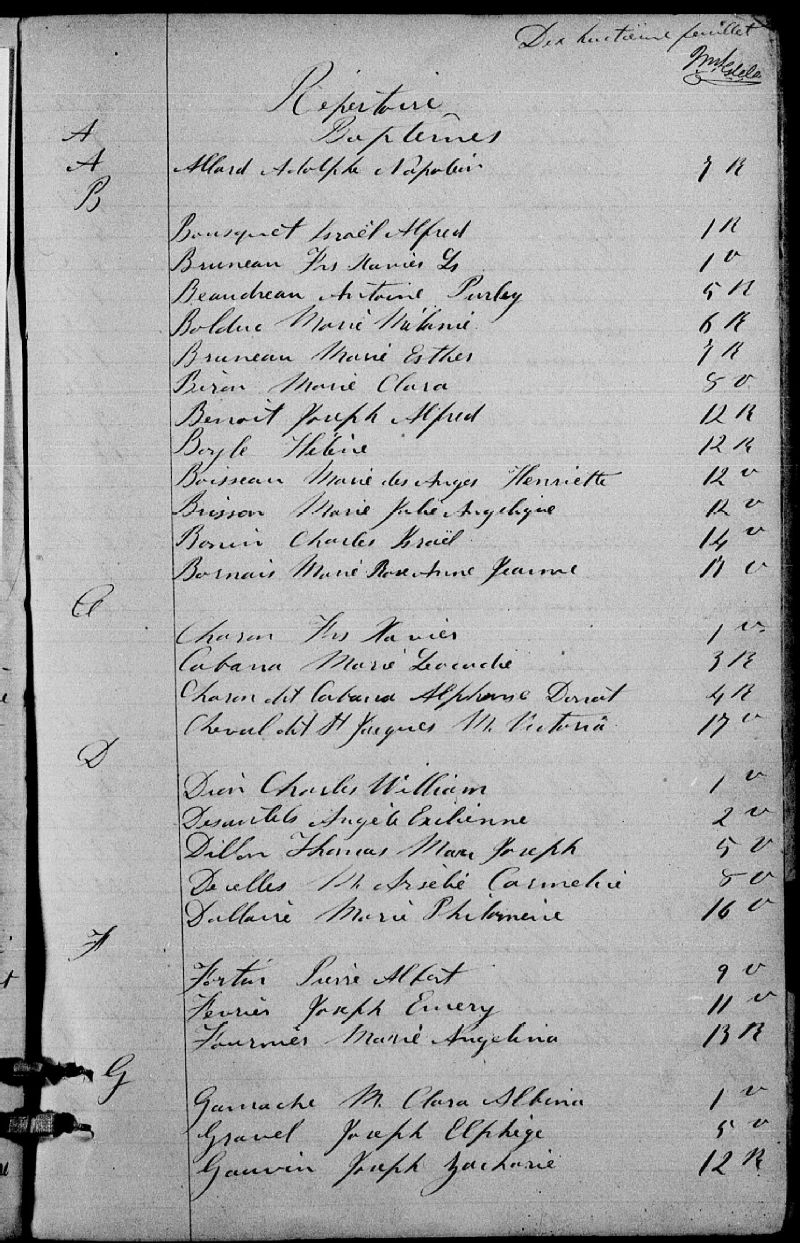 Dix huitième feuillet
Répertoire
A Baptêmes
A Allard Adolphe Napoléon 7 R
B
Bousquet Israël Alfred 1 R
Bruneau Frs Xavier Ls 1 v
Beaudreau Antoine Purley 5 R
Bolduc Marie Mélanie 6 R
Bruneau Marie Esther 7 R
Biron Marie Clara 8 v
Benoit Joseph Alfred 12 R
Boyle Hélène 12 R
Boisseau Marie des Anges Henriette 12 v
Brisson Marie Julie Angelique 12 v
Bonin Charles Israël 14 v
Bornais Marie Rose Anne Jeanne v
C
Charon Frs Xavier 1 v
Cabana Marie Leocadie 3 R
Charon dit Cabana Alphonse Donat 4 R
Cheval dit St Jacques M. Victoria 17 v
D
Dion Charles William 1 v
Desautels Angèle Exilienne 2 v
Dillon Thomas Marc Joseph 5 v
Decelles M. Arsélie Carmelie 8 v
Dallaire Marie Philomène 16 v
F
Fortin Pierre Albert 9 v
Fevrier Joseph Emery 11 v
Fournier Marie Angelina 13 R
G
Gamache M. Clara Albina 1 v
Gravel Joseph Elphège 5 v
Gauvin Joseph Zacharie 12 R